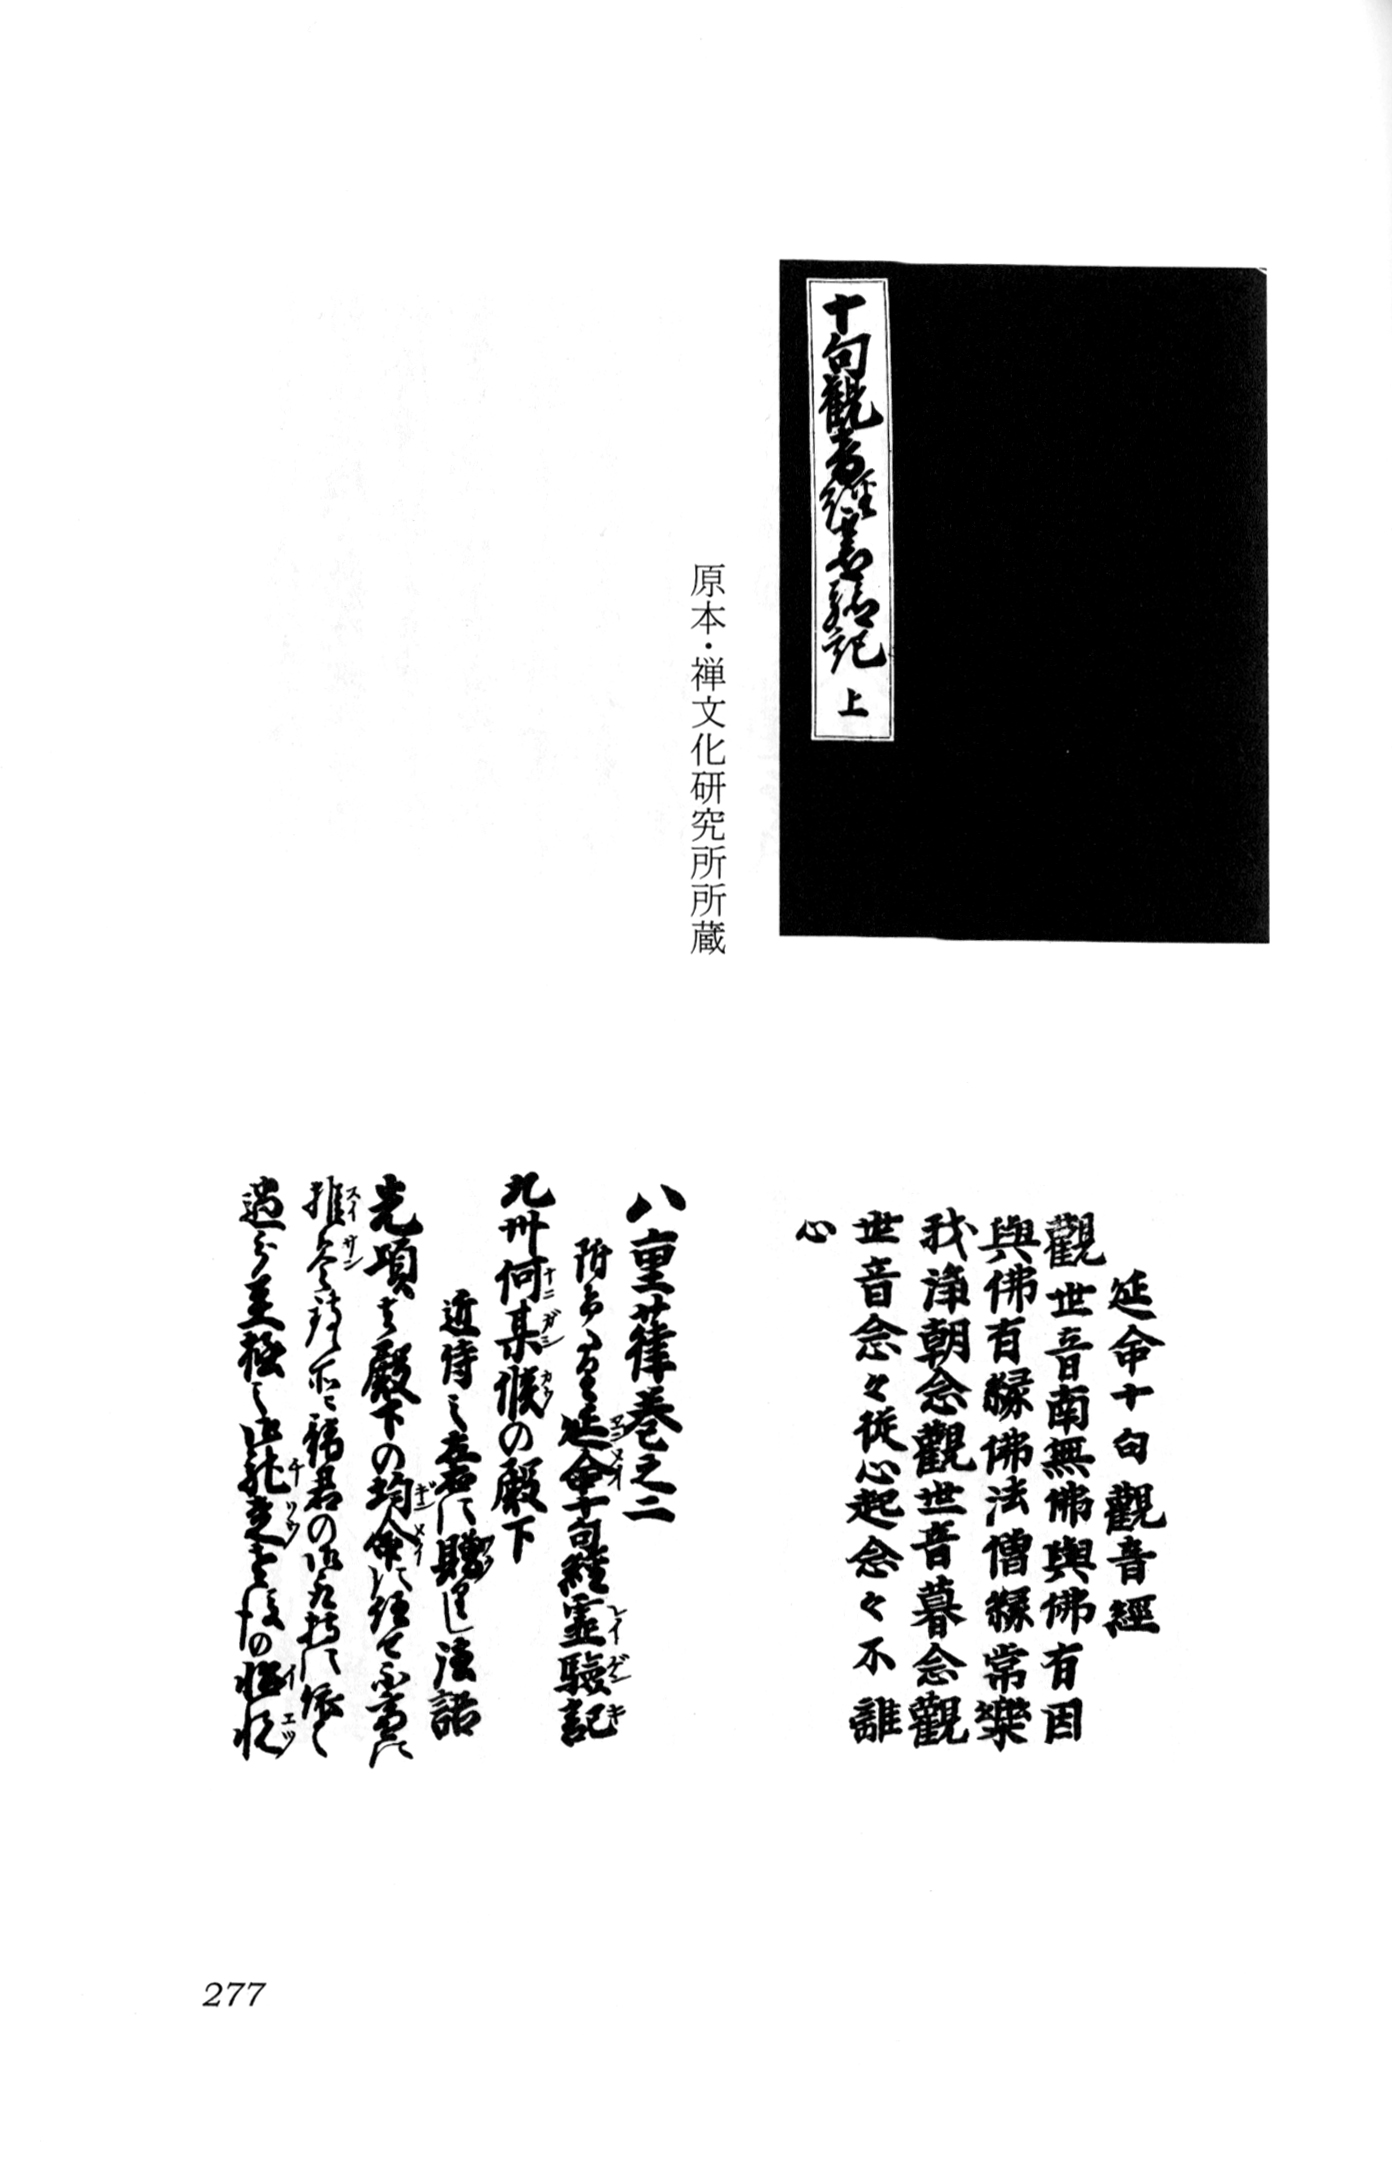 十句觀音經霊驗記 上
原本・禅文化研究所所蔵
延命十句觀音經
觀世音南無佛與佛有因
與佛有縁佛法僧縁常樂
我淨朝念觀世音暮念觀
世音念々從心起念々不離
心
八重葎巻之二
延命十句經霊驗記
九州何某侯の殿下
近侍之左右に贈りし法語
先頃は殿下の均命に任せ
推参
過分至極之
277